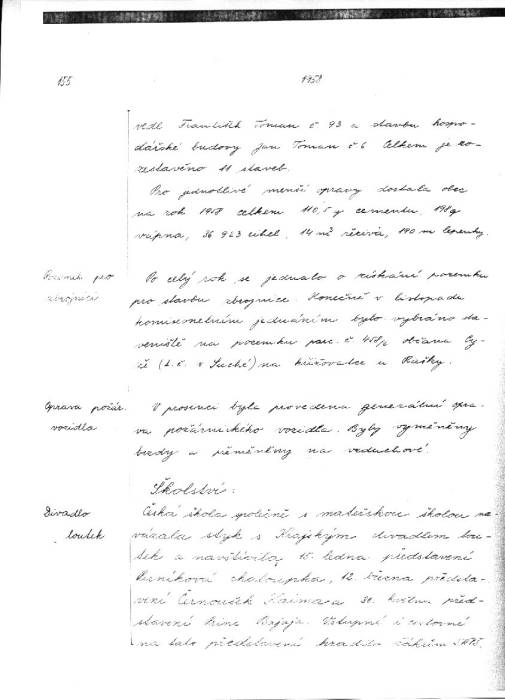 155
1958
vedl František Toman č. 93 a stavbu hospo-
dářské budovy Jan Toman č 6. Celkem je ro-
zestavěno 11 staveb.
Pro jednotlivé menší opravy dostala obec
na rok 1958 celkem 110,5 q cementu, 198 q
vápna, 36 923 cihel, 14 m³ řeziva, 190 m lepenky.
Pozemek pro
zbrojnici
Po celý rok se jednalo o získání pozemku
pro stavbu zbrojnice. Konečně v listopadu
komisionelním jednáním bylo vybráno sta-
veniště na pozemku parc. č. občana Cy-
že (č. v Suché) na křižovatce u Rušky.
Oprava požár.
vozidla
V prosinci byla provedena generální opra-
va požárnického vozidla. Byly vyměněny
brzdy a přeměněny na vzduchové.
Školství:
Divadlo
loutek
Česká škola společně s mateřskou školou na-
vázala styk s Krajským divadlem lou-
tek a navštívila 15. ledna představení
Perníková chaloupka, 12. března předsta-
vení Černoušek a 30. května před-
stavení Princ Bajaja. Vstupné i cestovné
na tato představení hradilo žákům SRPŠ.